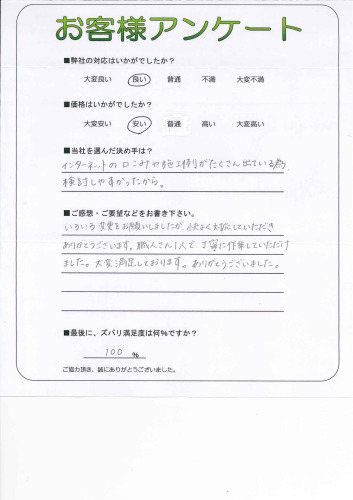 お客様アンケート
■弊社の対応はいかがでしたか？
大変良い 良い 普通 不満 大変不満
■価格はいかがでしたか？
大変安い 安い 普通 高い 大変高い
■当社を選んだ決め手は？
インターネットの口こみや施工例がたくさん出ている為、
検討しやすかったから。
■ご感想・ご要望などをお書き下さい。
いろいろ変更をお願いしましたが、快よく対応していただき
ありがとうございます。職人さん1人で、丁寧に作業していただけ
ました。大変満足しております。ありがとうございました。
■最後に、ズバリ満足度は何％ですか？
100 ％
ご協力頂き、誠にありがとうございました。